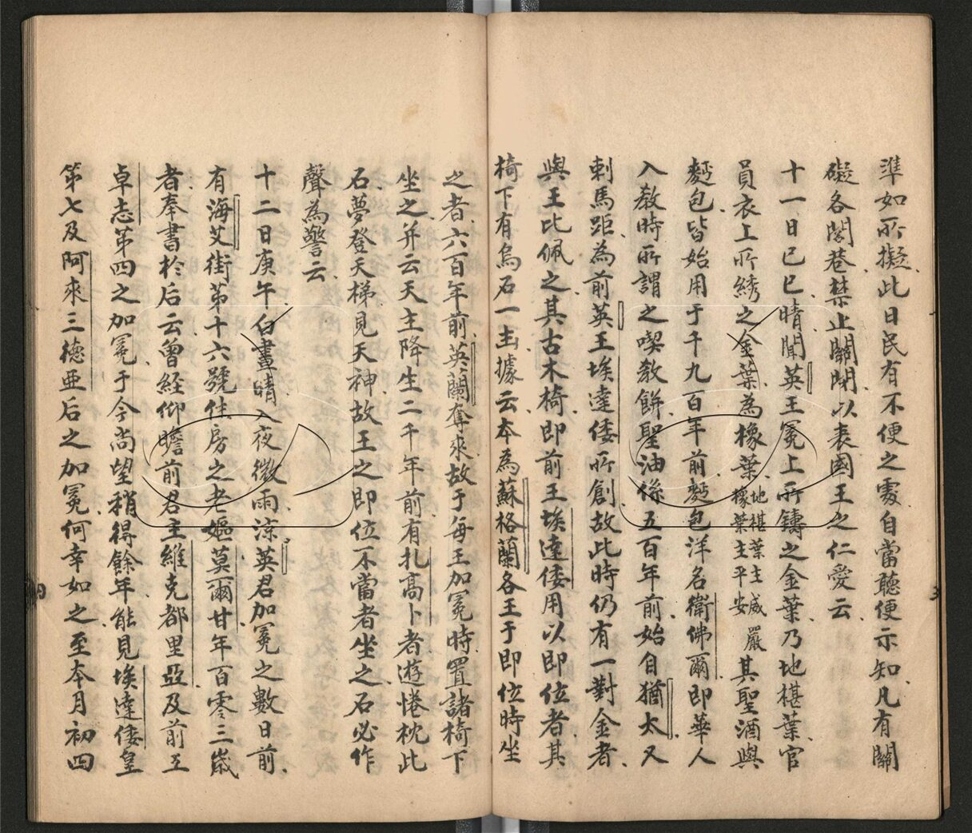 準如所擬此日民有不便之處自當聽便示知凡有關
礙各閭巷禁止關閉以表國王之仁愛云
十一日己巳晴聞英王冕上所鑄之金葉乃地椹葉官
員衣上所綉之金葉為橡葉地椹葉主威嚴橡葉主平安其聖酒與
麪包皆始用于千九百年前麪包洋名衛佛爾即華人
入教時所謂之喫教餅聖油係五百年前始自猶太又
刺馬距為前英王埃達倭所創故此時仍有一對金者
與王比佩之其古木椅即前王埃達倭用以即位者其
椅下有烏石一出據云本為蘇格蘭各王于即位時坐
之者六百年前英蘭奪來故于每王加冕時置諸椅下
坐之并云天主降生二千年前有扎高卜者遊惓枕此
石夢登天梯見天神故王之即位不當者坐之石必作
聲為警云
十二日庚午白晝晴入夜微雨涼英君加冕之數日前
有海艾街第十六號住房之老嫗莫爾甘年百零三歲
者奉書於后云曾經仰瞻前君主維克都里亞及前王
卓志第四之加冕于今尚望稍得餘年能見埃達倭皇
第七及阿來三德亞后之加冕何幸如之至本月初四